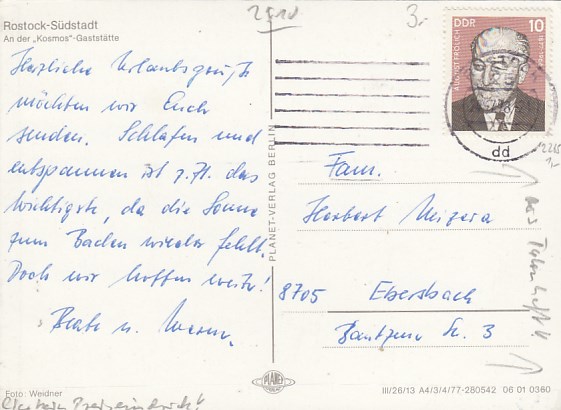 2510
3,-
Rostock-Südstadt
An der „Kosmos“-Gaststätte
Herzliche Urlaubsgrüße
möchten wir Euch
senden. Schlafen und
entspannen ist z. Zt. das
Wichtigste, da die Sonne
zum Baden wieder fehlt.
Doch wir hoffen weiter!
Beate u.
DDR 10
AUGUST FRÖLICH
dd
2265
1,-
PLANET-VERLAG BERLIN
Fam.
Herbert
8705 Ebersbach
Bautzner Str. 3
PLANET
Foto: Weidner
III/26/13 A4/3/4/77-280542 06 01 0360